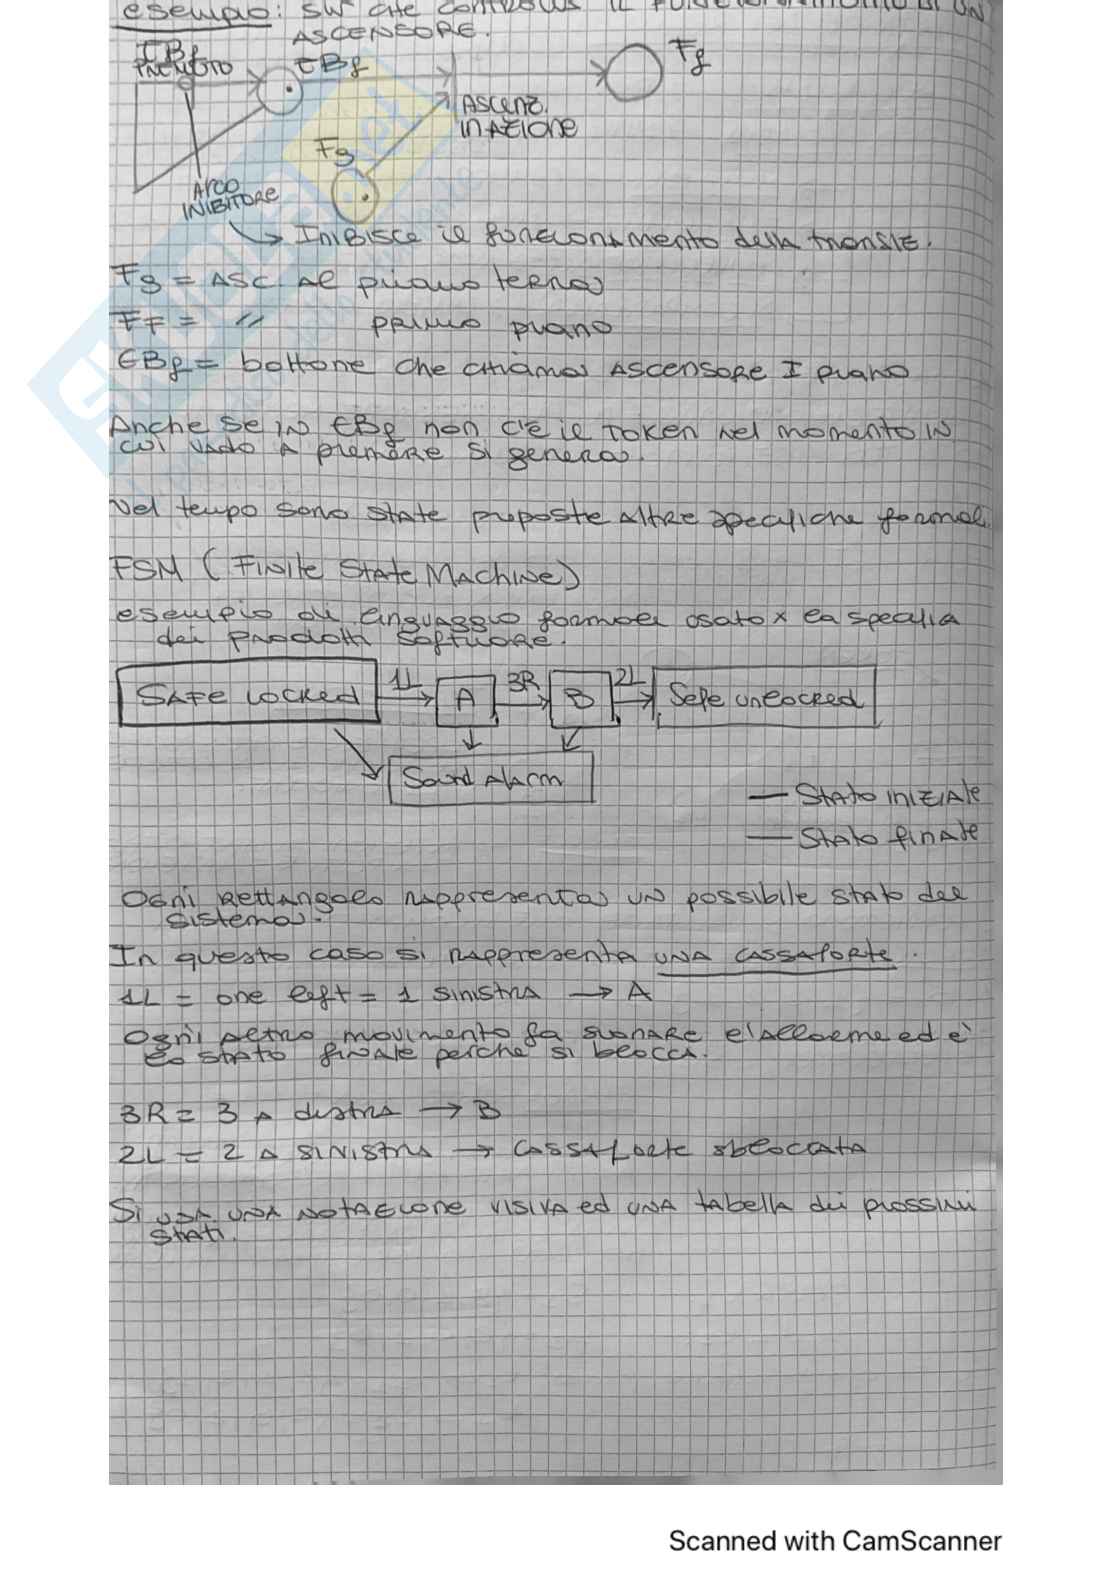 esempio: SW che controlla il funzionamento di un
ASCENSORE.
EBf
PREMUTO
EBf
Ff
ASCENS.
IN AZIONE
Fg
ARCO
INIBITORE
→ INIBISCE il funzionamento della transiz.
Fg = ASC. al piano terra
FF = // primo piano
EBf = bottone che chiama ASCENSORE I piano
Anche se in EBf non c'è il TOKEN nel momento in
cui vado a premere si genera.
Nel tempo sono state proposte altre specifiche formali
FSM (Finite State Machine)
esempio di linguaggio formale usato x la specifia
dei prodotti software.
SAFE LOCKED
1L
A
3R
B
2L
Safe unlocked
Sound Alarm
— Stato INIZIALE
— Stato finale
Ogni Rettangolo rappresenta un possibile stato del
sistema.
In questo caso si rappresenta UNA CASSAFORTE.
1L = one left = 1 sinistra → A
Ogni altro movimento fa suonare l'allarme ed è
lo stato finale perché si blocca.
3R = 3 a destra → B
2L = 2 a sinistra → cassaforte sbloccata
Si usa una notazione visiva ed una tabella dei prossimi
stati.
Scanned with CamScanner